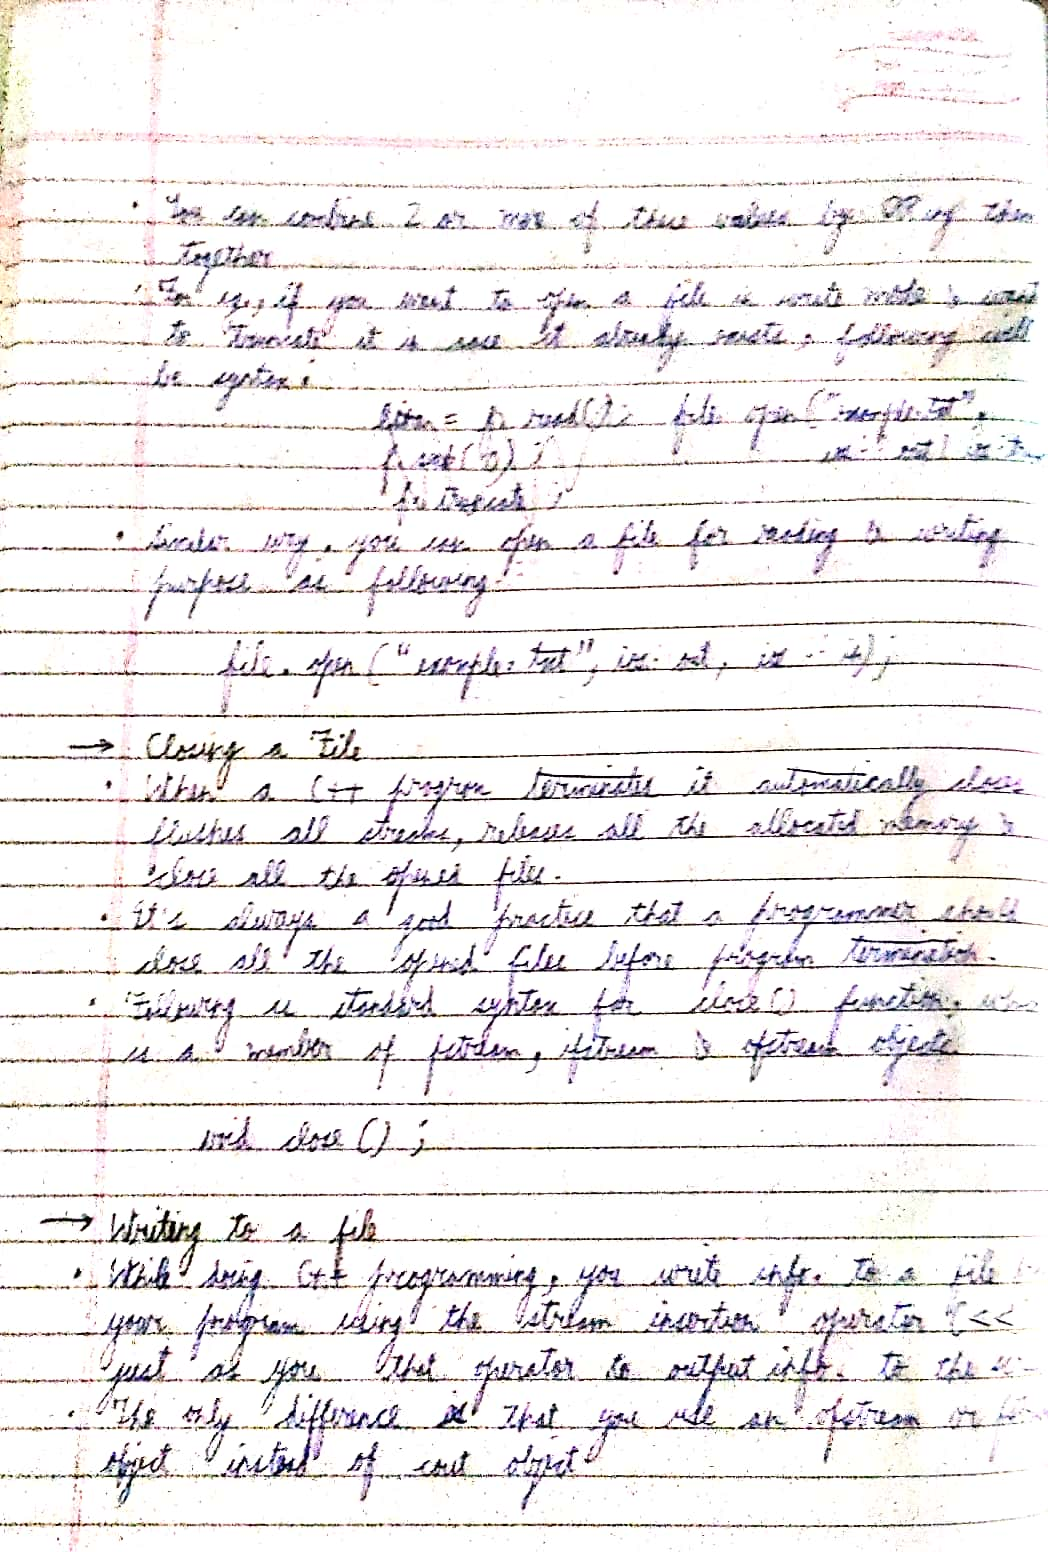 • You can combine 2 or more of these values by ORing them
together
• For eg., if you want to open a file in write mode & want
to truncate it in case it already exists, following will
be syntax:
= f. read(); file open("example.txt",
f. (0);
ios:: out |
f. truncate ;
• Similar way, you can open a file for reading & writing
purpose as following
file. open ("example. txt", ios:: out, ios :: in);
→ Closing a File
• When a C++ program terminates it automatically closes
flushes all streams, releases all the allocated memory &
close all the opened files.
• It's always a good practice that a programmer should
close all the opened files before program termination.
• Following is standard syntax for close() function, which
is a member of fstream, ifstream & ofstream objects
void close () ;
→ Writing to a file
• While doing C++ programming, you write info. to a file
your program using the stream insertion operator (<<
just as you that operator to output info. to the
• The only difference is that you use an ofstream or
object instead of cout object